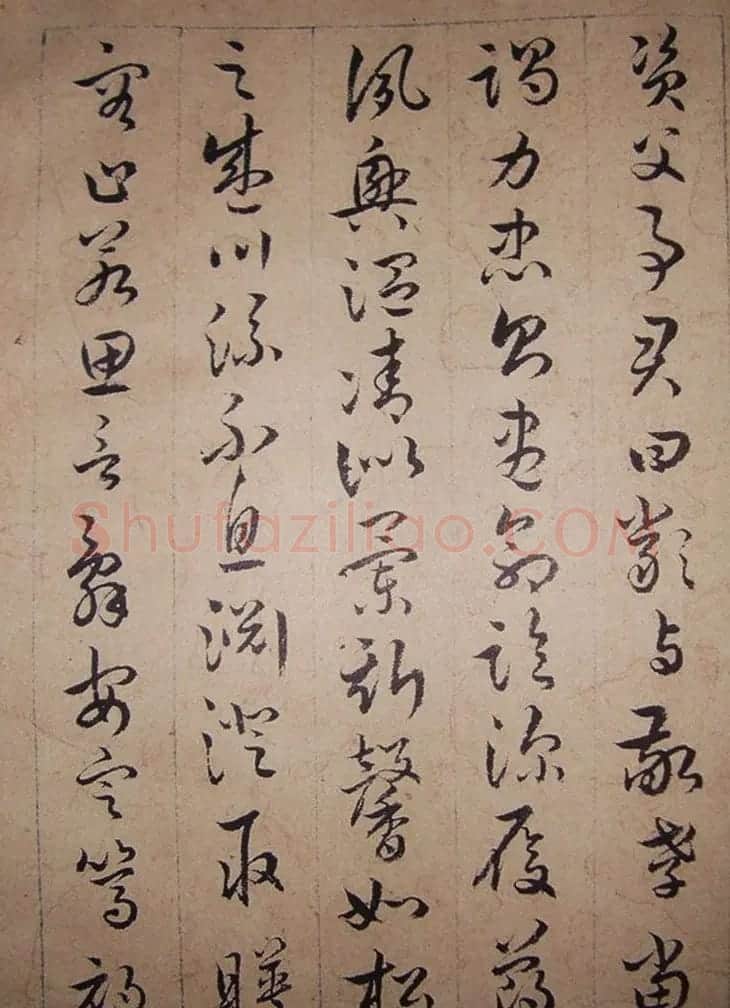 資父事君曰嚴与敬孝當
竭力忠則盡命臨深履薄
夙興温凊似蘭斯馨如松
之盛川流不息淵澄取暎
容止若思言辭安定篤初
Shufaziliao.COM